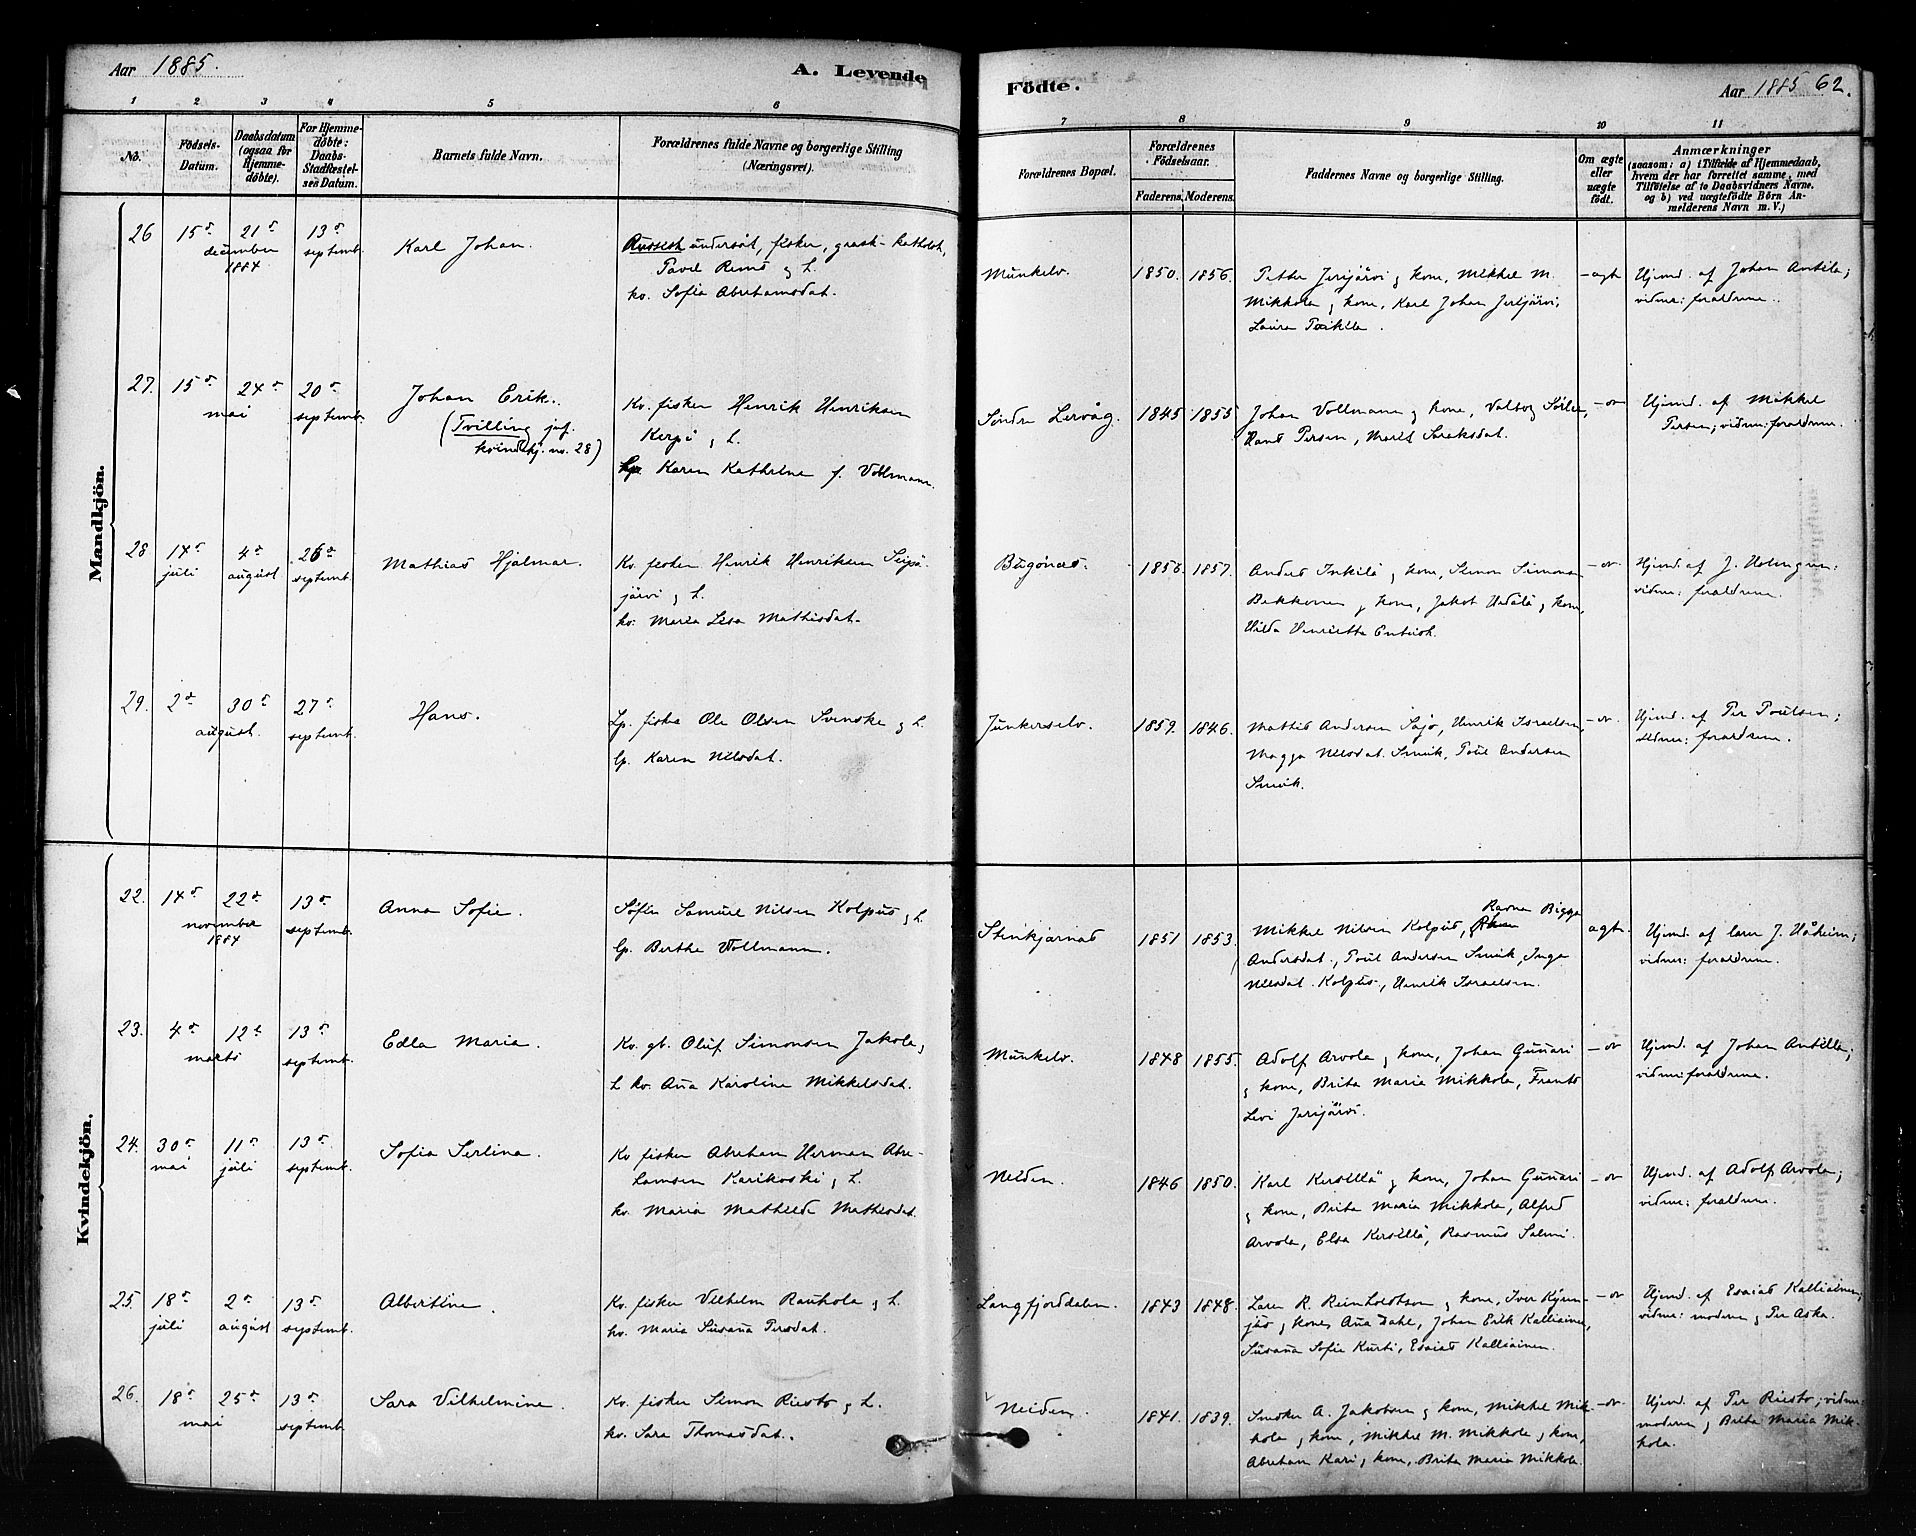 Aar 1885.
A. Levende
Födte.
Aar 1885 62.
1 2 3 4 5 6 7 8 9 10 11
No.
Födsels-Datum.
Daabsdatum (ogsaa för Hjemme-döbte).
For Hjemme-döbte: Daabs-Stadfæstel-sens Datum.
Barnets fulde Navn.
Forældrenes fulde Navne og borgerlige Stilling (Næringsvei).
Forældrenes Bopæl.
Forældrenes Födselsaar.
Faderens. Moderens.
Faddernes Navne og borgerlige Stilling.
Om ægte eller uægte födt.
Anmærkninger
(saasom: a) i Tilfælde af Hjemmedaab,
hvem der har forrettet samme, med
Tilföielse af to Daabsvidners Navne,
og b) ved uægtefödte Börn An-
melderens Navn m. V.)
Mandkjön.
26 15de 21de december 1884 13de septemb.
Karl Johan.
Russisk undersåt, fisker, græsk-katholsk,
Pavel Rems og h.
kv. Sofia Abrahamsdat.
Munkelv. 1850. 1856.
Petter Jerijärvi og kone, Mikkel M.
Mikkola og kone, Karl Johan Jerijärvi,
Laura
ægt
Hjemd. af Johan Antila;
vidner: forældrene.
27. 15de 24de mai 20de septemb.
Johan Erik.
(Tvilling jf.
kvindekj. no. 28)
Kv. fisker Henrik Henriksen
Kerpö og h.
Karen Kathrine f. Vollmann.
Söndre Lervåg. 1845 1855
Johan Vollmann og kone, Valborg
Persen, Marit
Hjemd. af Mikkel
Persen; vidner: forældrene.
28 14de juli 4de august 26de septemb.
Mathias Hjalmar.
Kv. fisker Henrik Henriksen Seipä-
järvi og h.
kv. Maria Lisa Mathisdat.
Bugönæs. 1856. 1857.
Anders Inkilä og kone, Simon Simonsen
Bekkonen og kone, Jakob og kone,
Hilda Henrietta
Hjemd. af J.
vidner: forældrene.
29. 2de 30de august. 27de septemb.
Hans.
Lp. fisker Ole Olsen Svenske og h.
lp. Karen Nilsdat.
Junkerselv. 1859. 1846.
Mathis Andersen Sajo, Henrik Israelsen,
Magga Nilsdat. Smuk, Poul Andersen
Smuk.
Hjemd. af Per Poulsen;
vidner: forældrene.
Kvindekjön.
22. 14de 22de november 1884 13de septemb.
Anna Sofie.
Söfin Samuel Nilsen Kolpus og h.
lp. Berthe Vollmann.
Stenkjærnæs 1851 1853.
Mikkel Nilsen Kolpus, Ravna Bigga
Andersdat., Poul Andersen Smuk, Inga
Nilsdat. Kolpus, Henrik Israelsen.
ægt.
Hjemd. af lærer J. Håheim;
vidner: forældrene.
23. 4de 12te marts 13de septemb.
Edla Maria.
Kv. gb. Oluf Simonsen Jakola og
h. kv. Ana Karoline Mikkelsdat.
Munkelv. 1848 1855.
Adolf Arvola og kone, Johan Gunari
og kone, Brita Maria Mikkola, Frants
Levi Jerijärvi.
Hjemd. af Johan Antilla;
vidner: forældrene.
24. 30de mai 11te juli 13de septemb.
Sofia Serlina.
Kv. fisker Abraham Herman Abra-
hamsen Karikoski og h.
kv. Maria Mathilde Mathisdat.
Neiden. 1846 1850.
Karl Kersillä og kone, Johan Gunari
og kone, Brita Maria Mikkola, Alfred
Arvola, Elsa Kersillä, Rasmus Salmi.
Hjemd. af Adolf Arvola;
vidner: forældrene.
25. 18de juli 2de august 13de septemb.
Albertine.
Kv. fisker Vilhelm Rauhola og h.
kv. Maria Susana Persdat.
Langfjorddalen. 1843 1848.
Lars R. Reinholdtsen og kone, Iver
og kone, Ana Dahl, Johan Erik Kalliainen,
Susana Sofie Kurti, Esaias Kalliainen.
Hjemd. af Esaias Kalliainen;
vidner: moderen og Per Aska.
26. 18de 25de mai 13de septemb.
Sara Vilhelmine.
Kv. fisker Simon Riesto og h.
kv. Sara Thomasdat.
Neiden. 1841. 1839.
Snedker A. Jakobsen og kone, Mikkel Mik-
kola og kone, Mikkel M. Mikkola og kone,
Abraham Kari og kone, Brita Maria Mikkola.
Hjemd. af Per Riesto; vidner:
moderen og Brita Maria Mik-
kola.